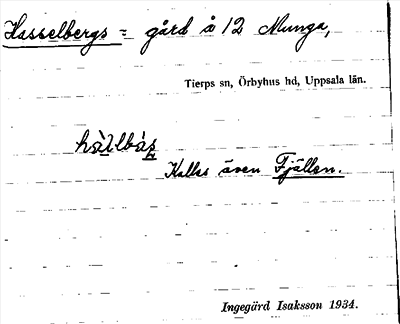 Hasselbergs = gård å 12 Munga,
Tierps sn, Örbyhus hd, Uppsala län.
Kallas även Fjällen.
Ingegärd Isaksson 1934.